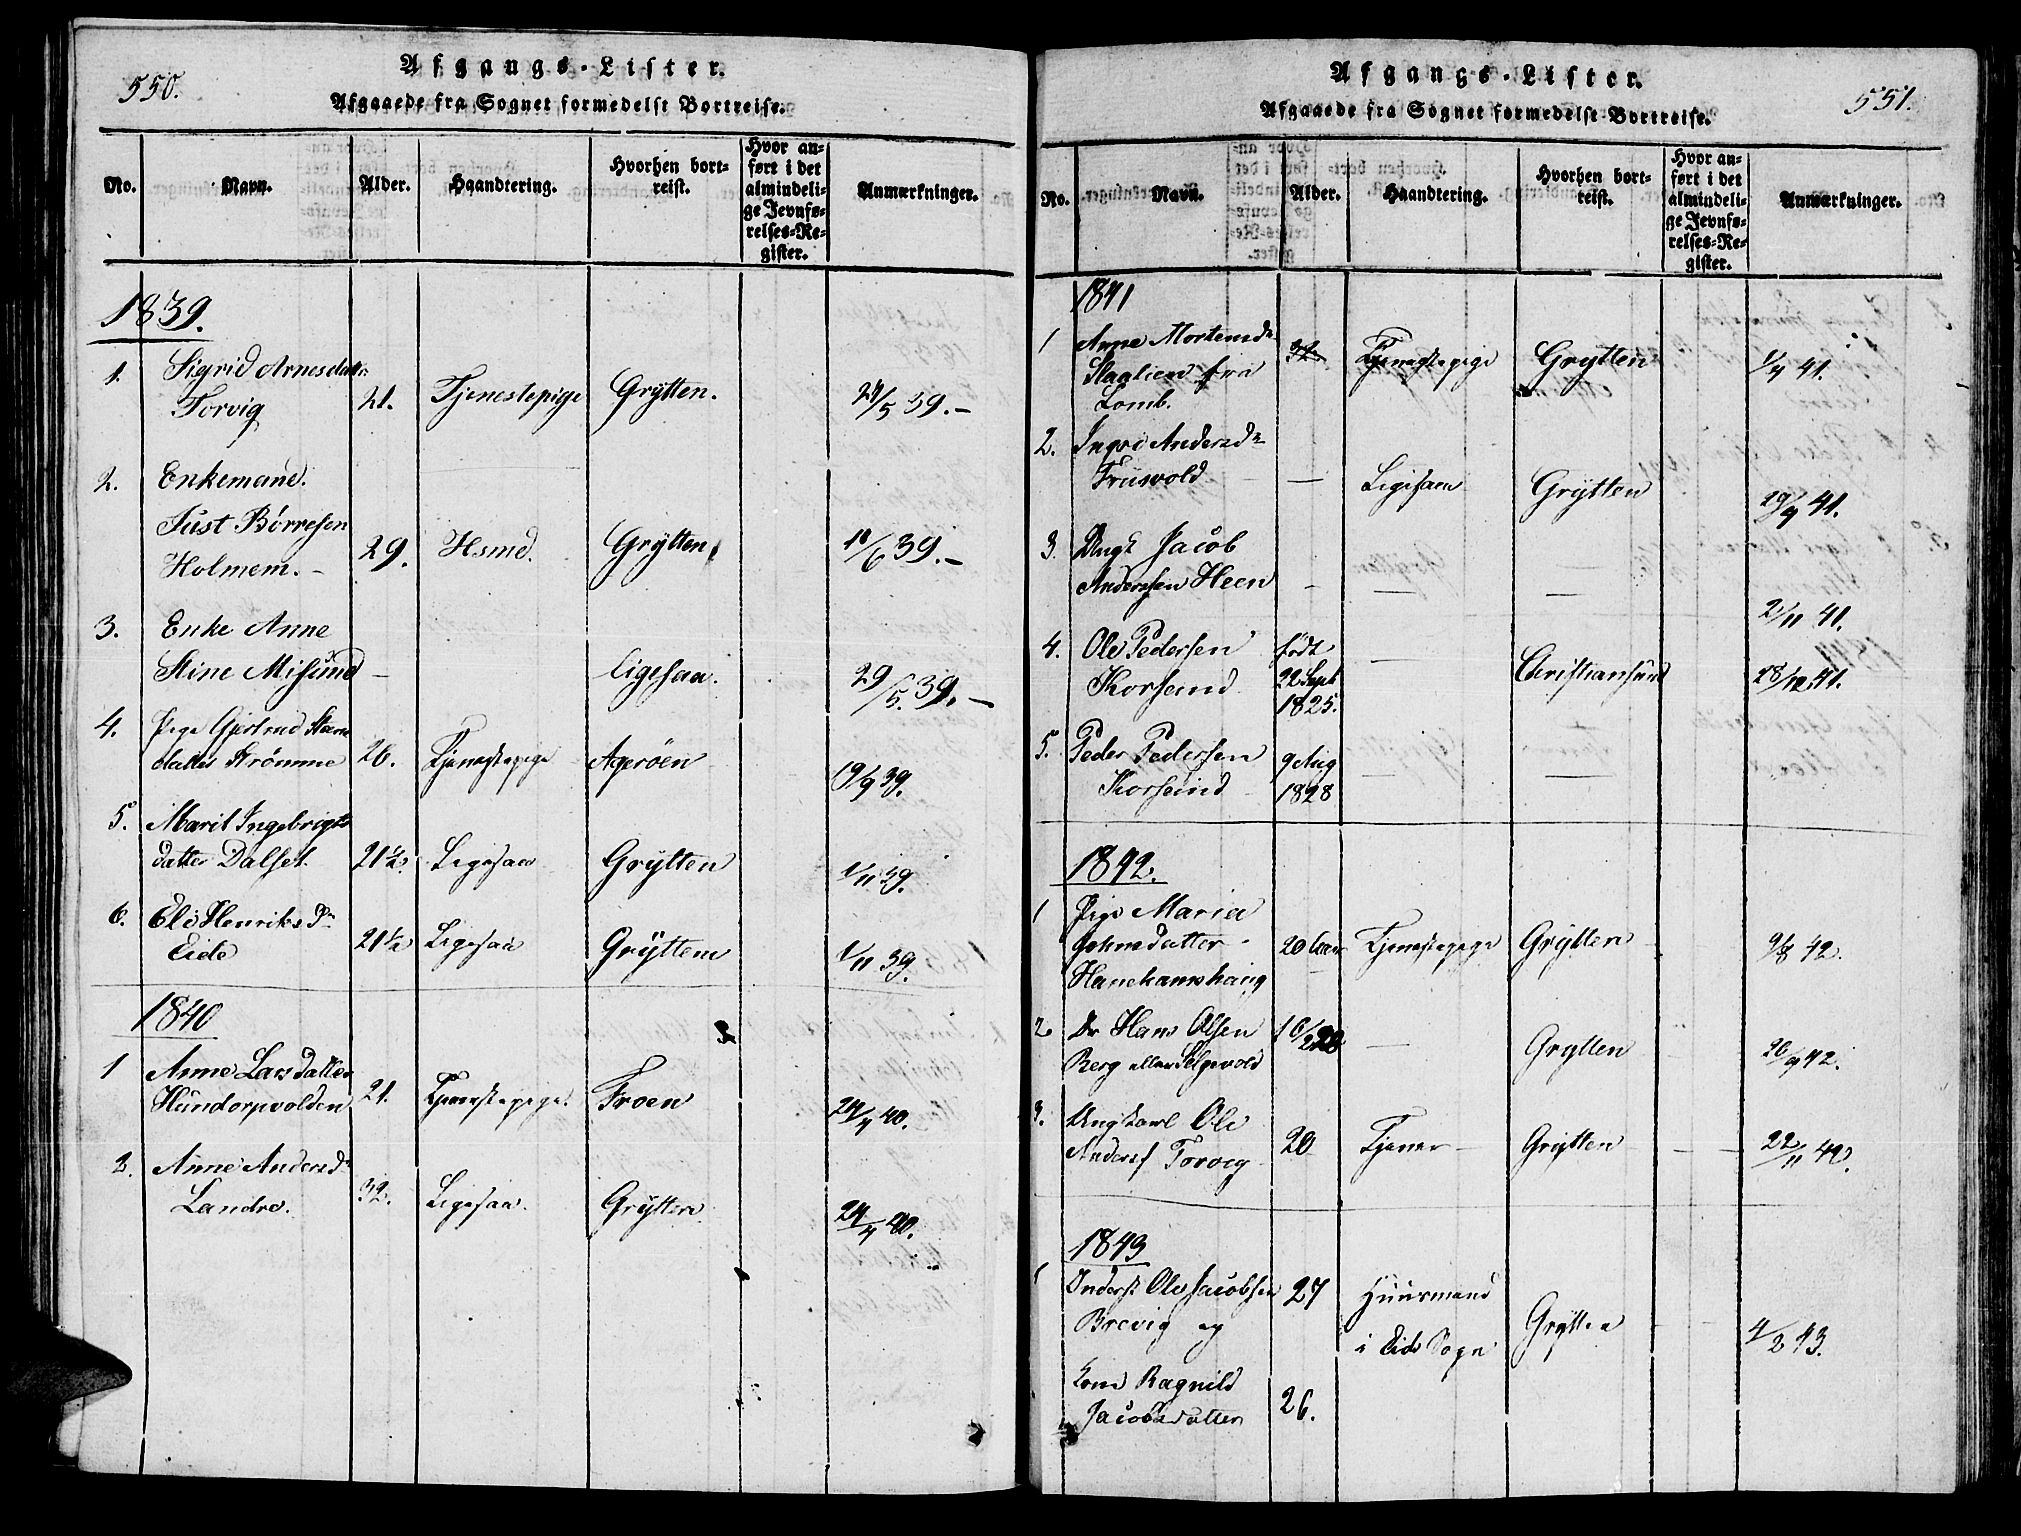 550.
Afgangs-Lister.
Afgaaede fra Sognet formedelst Bortreise.
No. Navn. Alder. Haandtering. Hvorhen bortreist. Hvor anført i det almindelige Jevnførelses-Register. Anmærkninger.
1839.
1. Sigrid Arnesdatter
Torvig 21. Tjenestepige Grytten. 24/5 39.-
2. Enkemand.
Just Børresen
Holmem. - 29. Hsmd. Grytten 18/6 39.-
3. Enke Anne
Stine Misund - Ligesaa. 29/5. 39.-
4. Pige Gjertrud
datter Strømme 26. Tjenestepige Agerøen 19/9 39.
5. Marit Ingebrigts
datter Dalset 21½. Ligesaa Grytten 1/11 39.
6. Eli Henriksdr
Eide 21½ Ligesaa Grytten 1/11 39.
1840
1 Anne Larsdatter
Hundorpvolden 21. Tjenestepige. Froen 24/4 40.
2. Anne Andersdr
Landre. 32. Ligesaa. Grytten. 24/4 40.
551.
Afgangs-Lister.
Afgaaede fra Sognet formedelst Bortreise.
No. Navn. Alder. Haandtering. Hvorhen bortreist. Hvor anført i det almindelige Jevnførelses-Register. Anmærkninger.
1841
1 Anne Mortensdr
fra
Lomb. 32 Tjenestepige Grytten 1/4 41.
2. Ingri Andersdr
Friisvold - Ligesaa Grytten 29/4 41.
3. Ungk Jacob
Anderssen Heen - - - 2/11 41.
4. Ole Pedersen født
Korsund 22 Sept - Christiansund 28/12 41.
1825.
5. Peder Pedersen 9 Aug
Korsund 1828 - -
1842.
1 Pige Maria
Johnsdatter 20 Aar Tjenestepige Grytten 9/8 42.
Hanekamhaug
2. Dr Hans Olsen
Berg eller Selgevold - Grytten 26/4 42.
3. Ungkarl Ole
Anders. Torvig 20 Tjener - Grytten - - 22/11 42.
1843
1 Inderst Ole Jacobsen 27 Huusmand
Brevig og i Eids Sogn Grytten - - 4/2 43.
Kone Ragnild
Jacobsdatter 26.